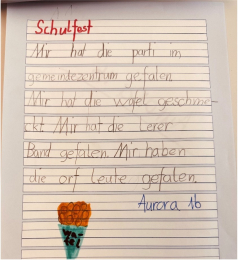 Schulfest
Mir hat die parti im
gemeindezentrum gefalen
Mir hat die wafel geschme-
ckt Mir hat die Lerer
Band gefalen. Mir haben
die orf leute gefalen.
Aurora 1b
wa-
fel